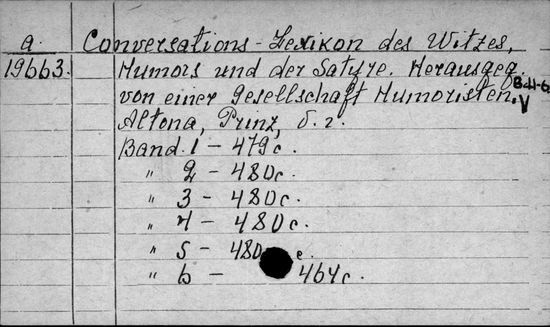 a. Conversations-Lexikon des Witzes,
19663. Humors und der Satyre. Herausgeg.
von einer Gesellschaft Humoristen. B.I-6 V
Altona, Prinz, б. г.
Band. 1 - 479 с.
" 2 - 480 с.
" 3 - 480 с.
" 4 - 480 с.
" 5 - 480 с.
" 6 - 464 с.